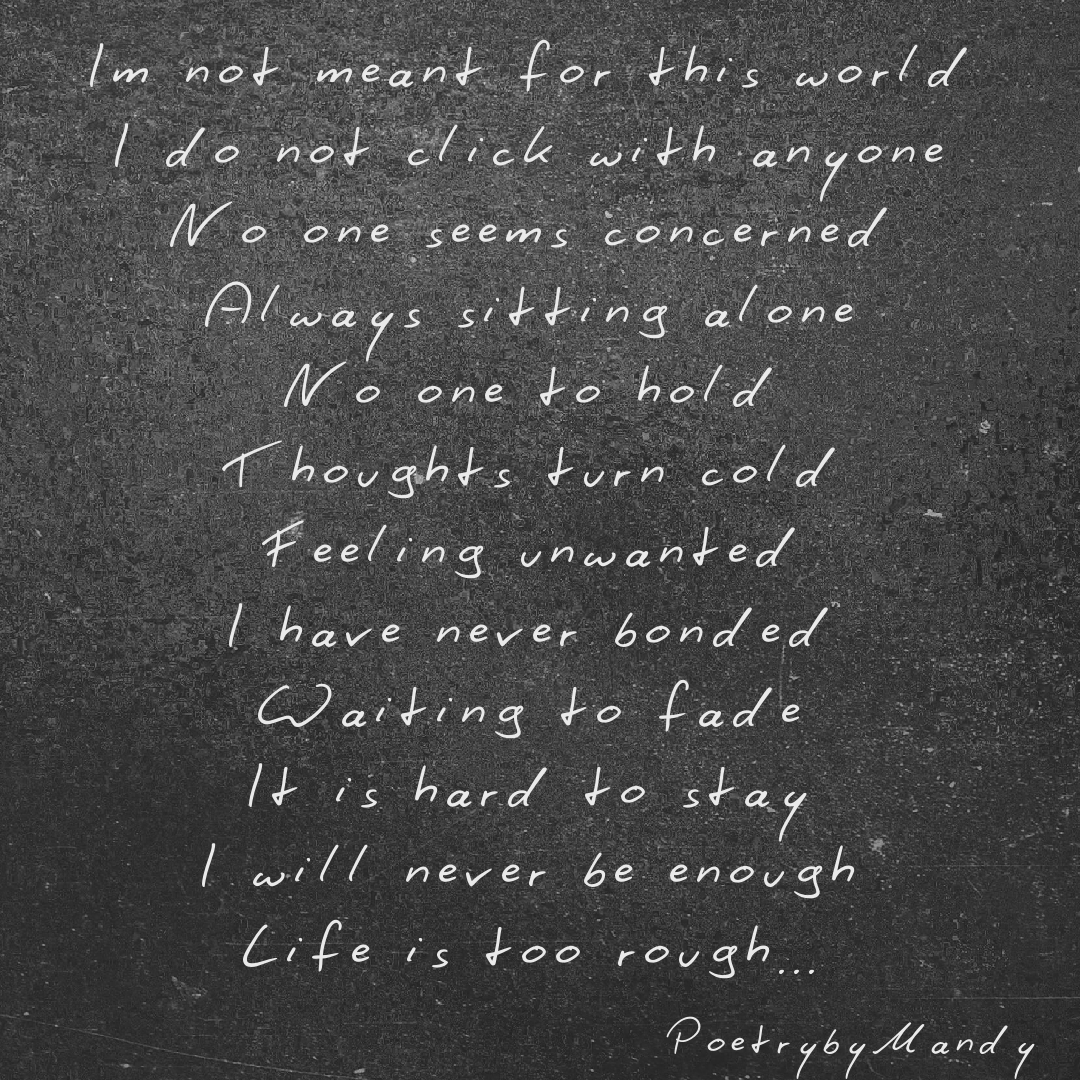 Im not meant for this world
I do not click with anyone
No one seems concerned
Always sitting alone
No one to hold
Thoughts turn cold
Feeling unwanted
I have never bonded
Waiting to fade
It is hard to stay
I will never be enough
Life is too rough...
PoetrybyMandy